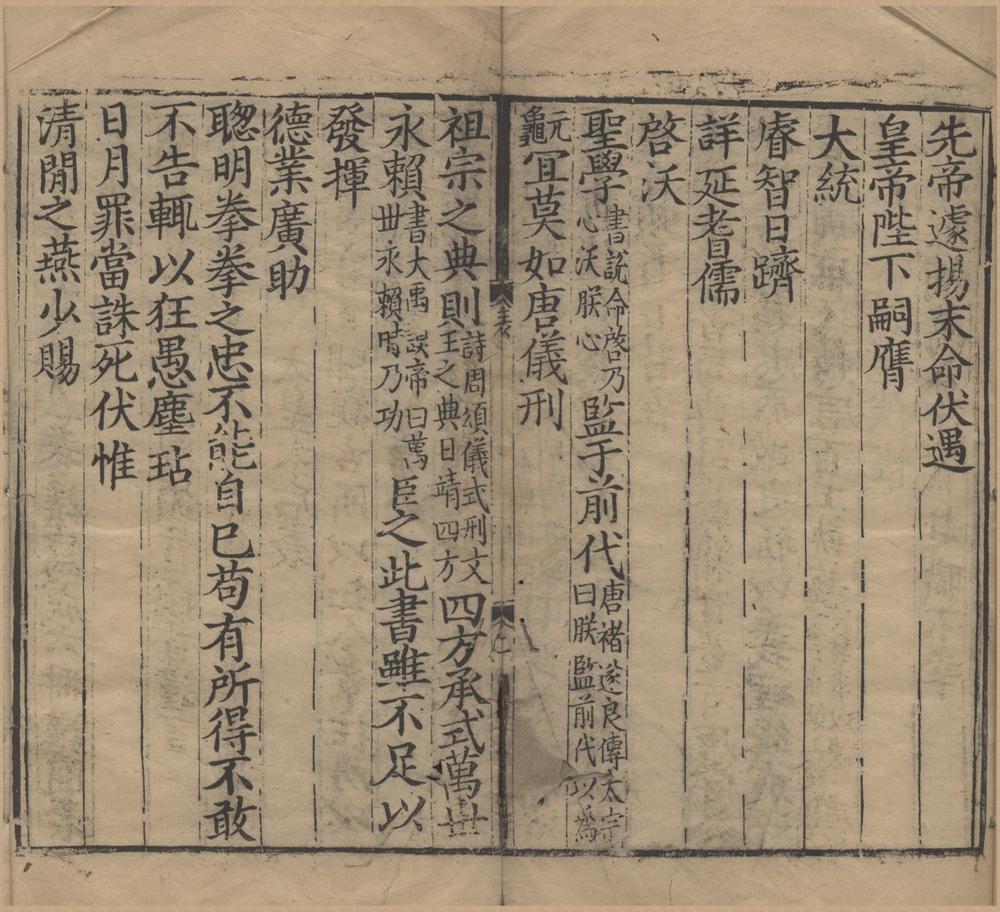 先帝遽揚末命伏遇
皇帝陛下嗣膺
大統
睿智日躋
詳延耆儒
啓沃
聖學書說命啓乃心沃朕心監于前代唐褚遂良傳太宗曰朕監前代以爲
元龜冝莫如唐儀刑
祖宗之典則詩周頌儀式刑文王之典日靖四方四方承式萬世
永賴書大禹謨帝曰萬世永賴時乃功臣之此書雖不足以
發揮
德業廣助
聦明拳拳之忠不能自已苟有所得不敢
不告輒以狂愚塵玷
日月罪當誅死伏惟
清閒之燕少賜